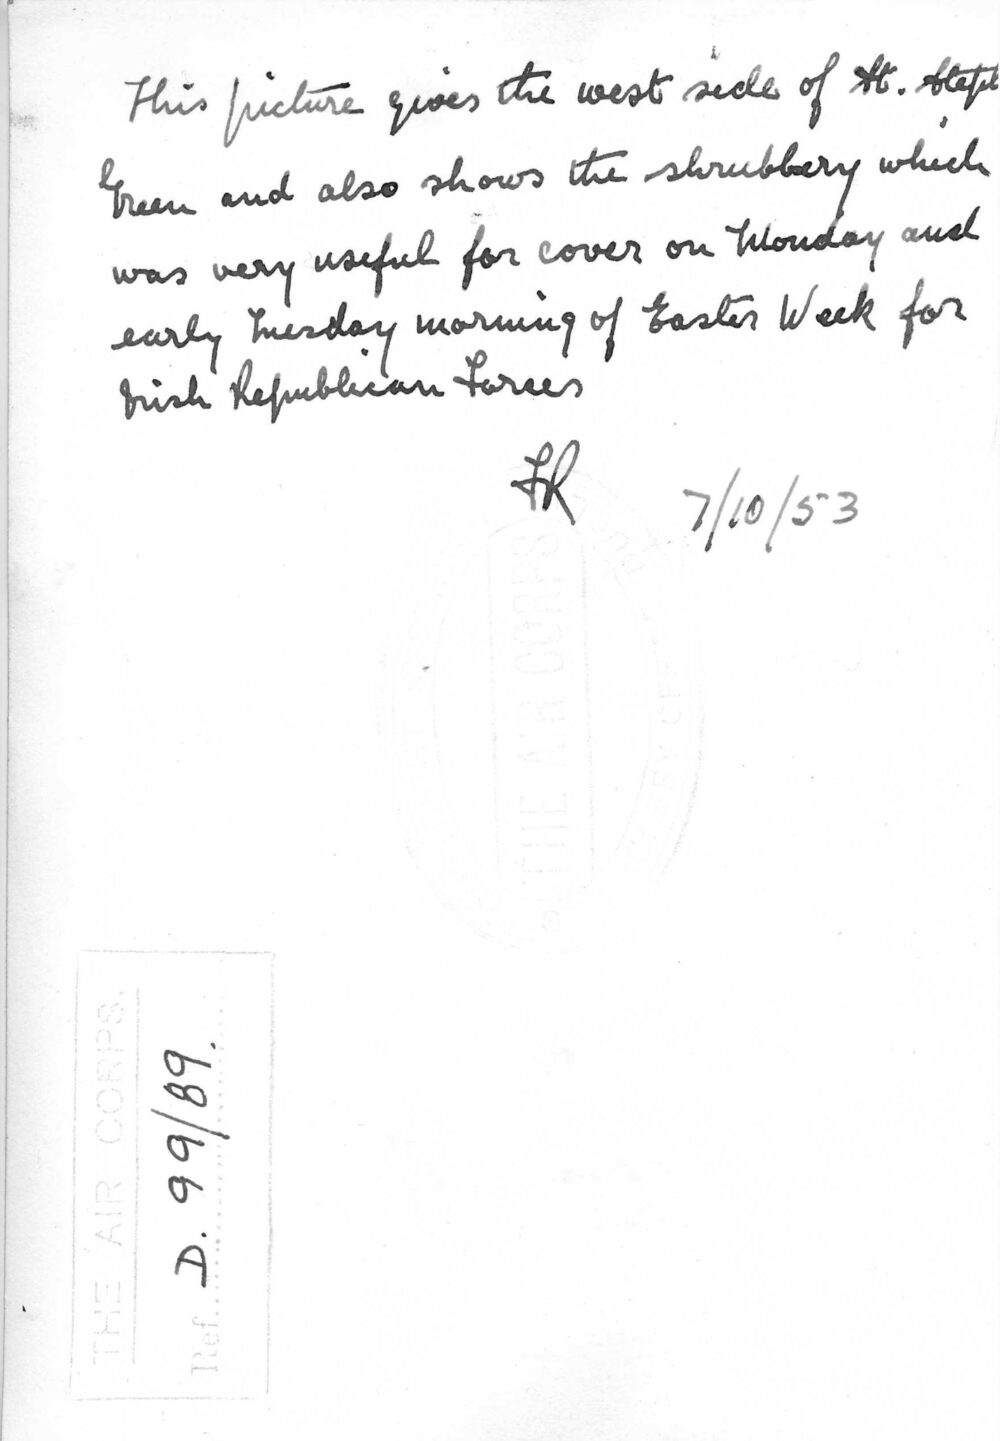 This picture gives the west side of St. Steph
Green and also shows the shrubbery which
was very useful for cover on Monday and
early Tuesday morning of Easter Week for
Irish Republican Forces
FR 7/10/53
THE AIR CORPS
THE AIR CORPS.
Ref. D. 99/89.